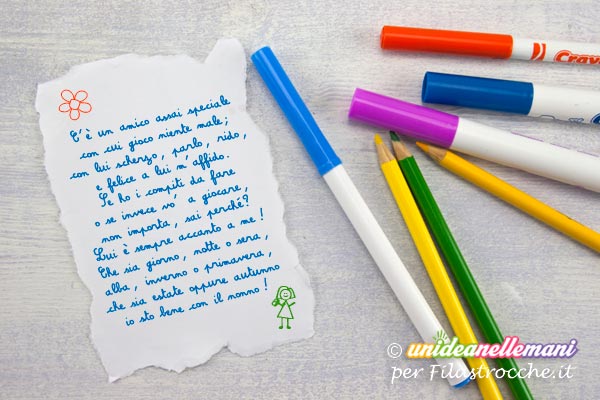 C'è un amico assai speciale
con cui gioco niente male;
con lui scherzo, parlo, rido,
e felice a lui m'affido.
Se ho i compiti da fare
o se invece vo' a giocare,
non importa, sai perché?
Lui è sempre accanto a me!
Che sia giorno, notte o sera,
alba, inverno o primavera,
che sia estate oppure autunno
io sto bene con il nonno!
© unideanellemani
per Filastrocche.it